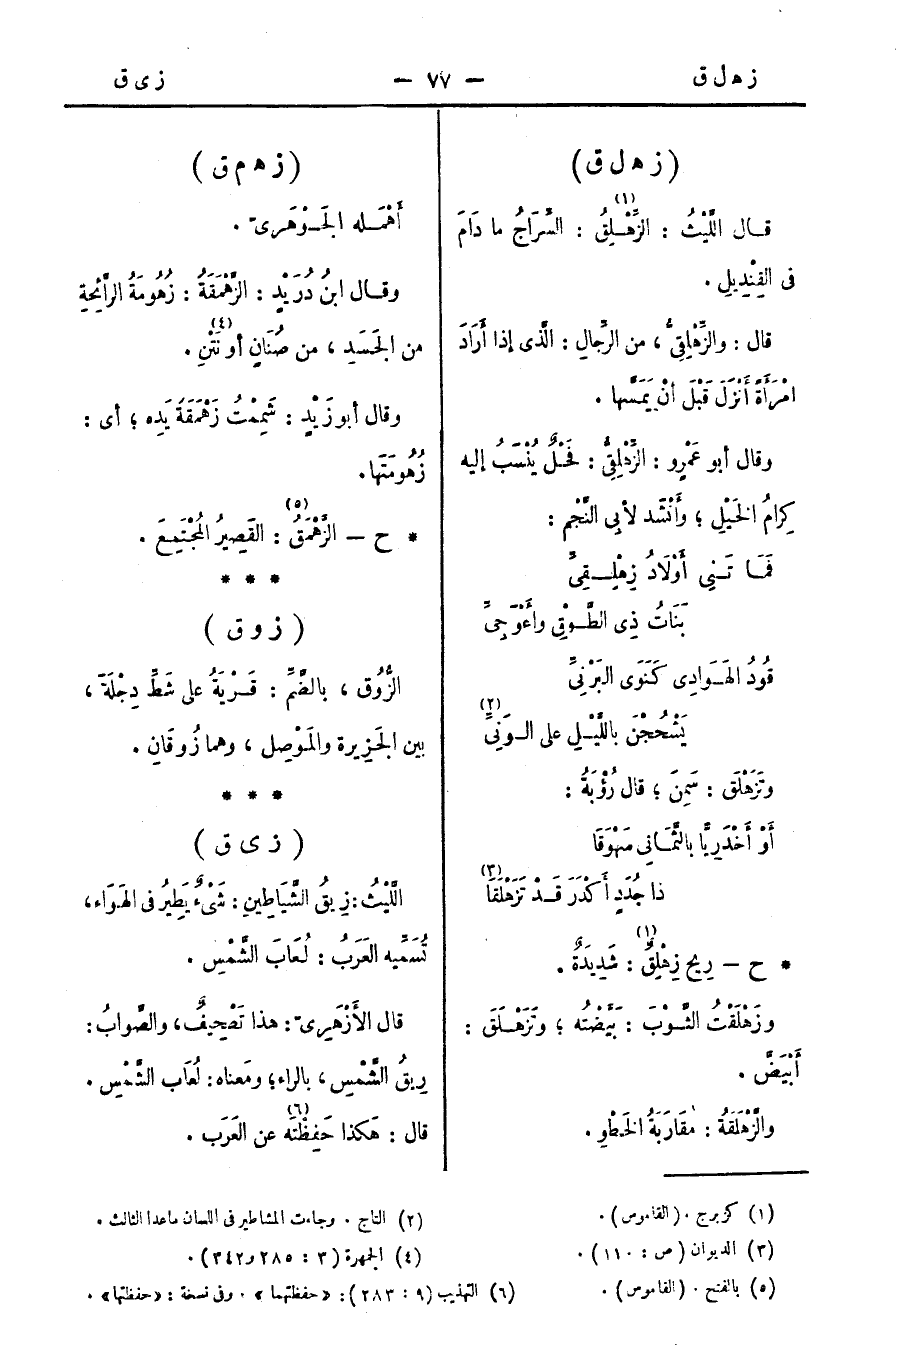 زهلق — ٧٧ — زىق
(زهلق)
قال اللَّيْثُ : الزِّهْلِقُ(١) : السِّرَاجُ ما دَامَ
فى القِنْدِيلِ .
قال : والزِّهْلِقِىُّ ، من الرِّجالِ : الَّذى إذا أَرَادَ
امْرَأَةً أَنْزَلَ قَبْلَ أنْ يَمَسَّها .
وقال أبو عَمْرٍو : الزِّهْلِقِىُّ : فَحْلٌ يُنْسَبُ إليه
كِرامُ الخَيْلِ ؛ وأَنْشَد لأبِى النَّجْم :
فَمَا تَنِى أَوْلَادُ زِهْلِقِىِّ
بَنَاتُ ذِى الطَّوْقِ وأَعْوَجِىِّ
قُودُ الهَوَادِى كَنَوَى البَرْنِىِّ
يَشْحُجْنَ باللَّيْلِ على الوَنِىِّ(٢)
وتَزَهْلَقَ : سَمِنَ ؛ قال رُؤْبَةُ :
أَوْ أَخْدَرِيًّا بالثَّمَانِى سَهْوَقَا
ذا جُدَدٍ أَكْدَرَ قَدْ تَزَهْلَقَا(٣)
* ح — رِيح زِهْلِقٌ(١) : شَدِيدَةٌ .
وزَهْلَقْتُ الثَّوْبَ : بَيَّضْتُه ؛ وتَزَهْلَقَ :
أَبْيَضَّ .
والزَّهْلَقَةُ : مُقَارَبَةُ الخَطْوِ .
(زهمق)
أَهْمَله الجَوْهَرِىّ .
وقال ابنُ دُرَيْدٍ : الزَّهْمَقَةُ : زُهُومَةُ الرَّائِحةِ
من الجَسَدِ ، من صُنَانٍ أو نَتْنٍ(٤) .
وقال أبو زَيْدٍ : شَمِمْتُ زَهْمَقَةَ يَدِه ؛ أى :
زُهُومَتَها.
* ح — الزَّهْمَقُ(٥) : القَصِيرُ المُجْتَمِعَ .
* * *
(زوق)
الزُّوق ، بالضَّمِّ : قَرْيَةُ على شَطِّ دِجْلَةَ ،
بين الجَزِيرة والمَوْصِل ، وهما زُوقَانِ .
* * *
(زىق)
اللَّيْثُ : زِيقُ الشَّيَاطِينِ : شَىْءٌ يَطِيرُ فى الهَوَاء ،
تُسَمِّيه العَرَبُ : لُعَابَ الشَّمْسِ .
قال الأَزْهَرِىّ : هذا تَصْحِيفٌ ، والصَّوابُ :
رِيقُ الشَّمْسِ ، بالراء ؛ ومَعناه : لُعَاب الشَّمْسِ .
قال : هَكذا حَفِظْتُه(٦) عن العَرَب .
(١) كزبرج . (القاموس) .
(٢) التاج . وجاءت المشاطير فى اللسان ماعدا الثالث .
(٣) الديوان (ص : ١١٠) .
(٤) الجمهرة (٣ : ٢٨٥ و٣٤٢) .
(٥) بالفتح . (القاموس) .
(٦) التهذيب (٩ : ٢٨٣) : «حفظتهما» . وفى نسخة : «حفظتها» .